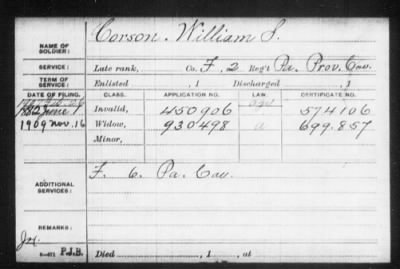 Corson, William S.
NAME OF SOLDIER:
SERVICE: Late rank, Co. F, 2 Reg't Pa. Prov. Cav.
TERM OF SERVICE: Enlisted , 1 Discharged , 1
DATE OF FILING. CLASS. APPLICATION NO. LAW. CERTIFICATE NO.
June 1 Invalid, 450906 574106
1909 Nov. 16 Widow, 930498 a 699.857
Minor,
ADDITIONAL SERVICES: F. 6. Pa. Cav.
REMARKS:
P.I.B. Died , 1 , at